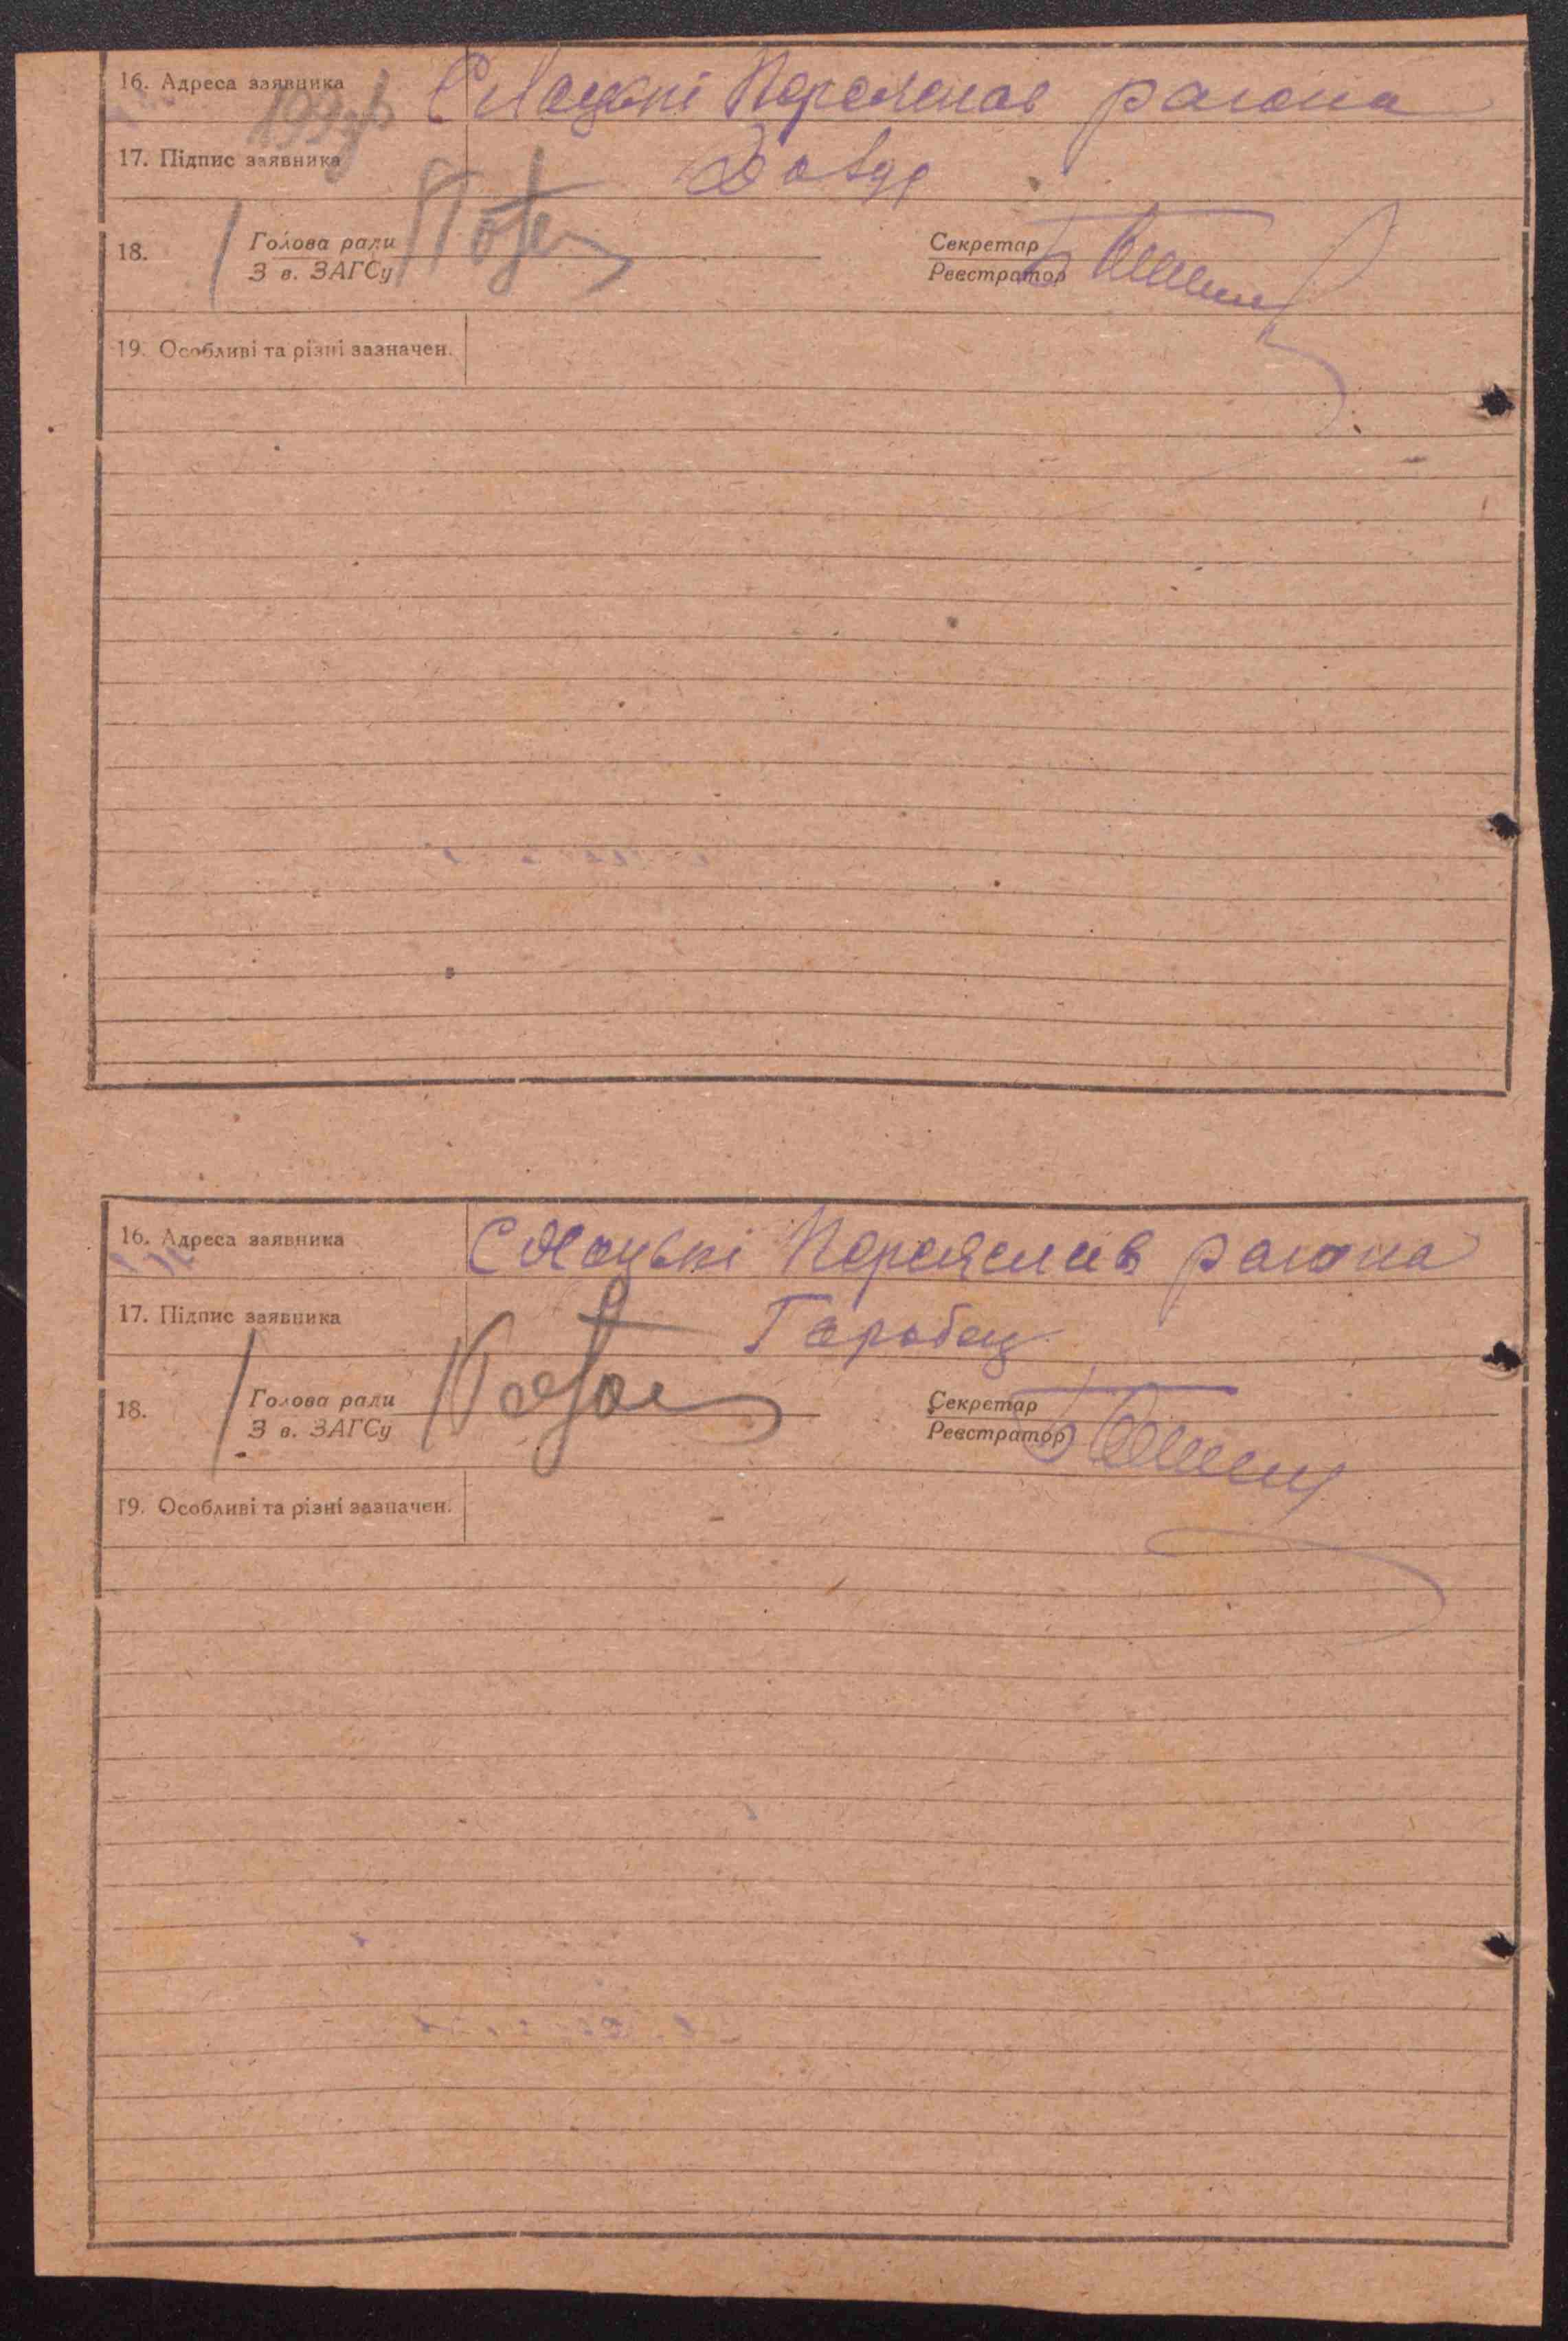 16. Адреса заявника С Мацькі Переяслав района
17. Підпис заявника
18. Голова ради Секретар
З в. ЗАГСу Реєстратор
19. Особливі та різні зазначен.
16. Адреса заявника С Мацькі Переяслав района
17. Підпис заявника Горобец
18. Голова ради Секретар
З в. ЗАГСу Реєстратор
19. Особливі та різні зазначен.